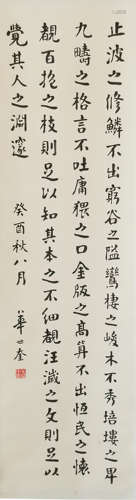 止波之修鱗不出窮谷之隘鸞棲之峻木不秀培塿之卑
九疇之格言不吐庸猥之口金版之高算不出恆民之懷
覩百抱之枝則足以知其本之不細覩汪濊之文則足以
覺其人之淵邃 癸酉秋八月 華世奎